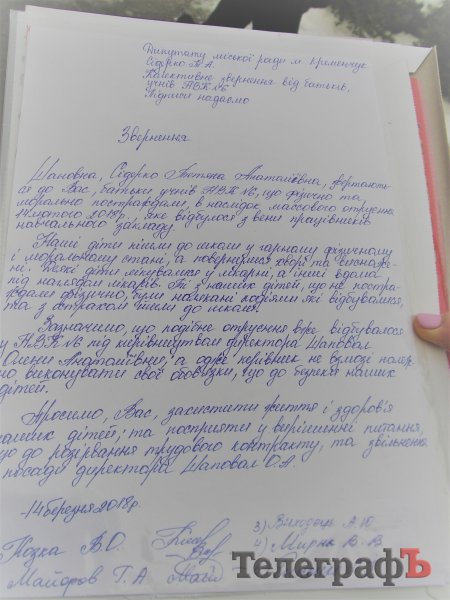 Депутату міської ради м. Кременчук
Сідерко Т.А.
Колективне звернення від батьків,
учнів ПВК №6
Підписи надаємо
Звернення
Шановна, Сідерко Тетяна Анатоліївна, звертають-
ся до Вас, батьки учнів ПВК №6, що фізично та
морально постраждали, в наслідок массового отруєння
14 лютого 2018р., яке відбулося з вени працівників
навчального закладу.
Наші діти пішли до школи у гарному фізичному
і моральному стані, а повернулися хворі та виснаже-
ні. Деякі діти лікувалися у лікарні, а інші вдома
під наглядом лікарів. Ті з наших дітей, що не постра-
ждали фізично, були налякані подіями які відбувалися,
та з острахом пішли до школи.
Зазначимо, що подібне отруєння вже відбувалося
у ПВК №6 під керівництвом директора Шаповал
Олени Анатоліївни, а отже керівник не взмозі належ-
но виконувати свої обов'язки, що до безпеки наших
дітей.
Просимо, Вас, захистити життя і здоров'я
наших дітей; та посприяти у вирішенні питання,
що до розірвання трудового контракту, та звільнення
з посади директора Шаповал О.А
14 березня 2018р.
Козка В.О.
3) Виходець А.Ю.
4) Мирна В.В
Майоров Т.А
ТелеграфЪ